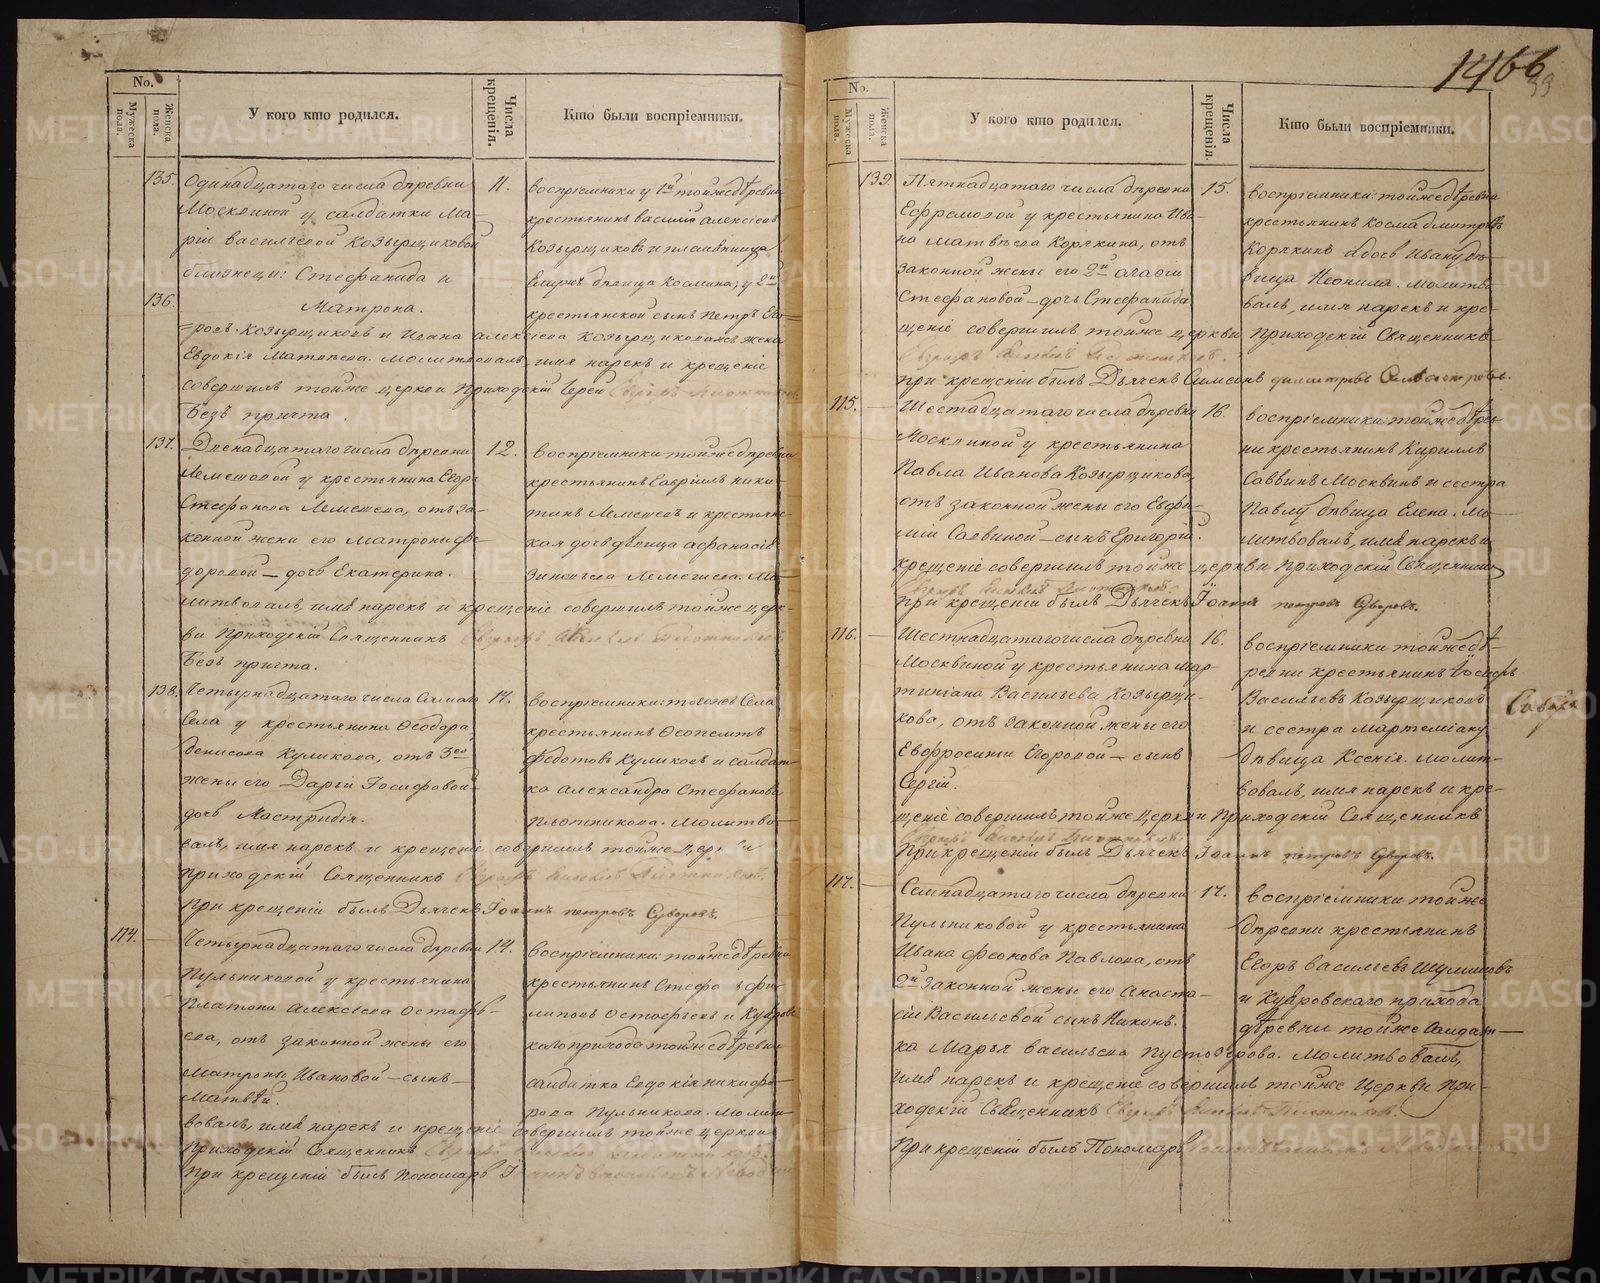 1466
39
No.
Мужеска пола.
Женска пола.
У кого кто родился.
Числа крещенія.
Кто были воспріемники.
135.
Одинадцатаго числа деревни
Москвиной у салдатки Ма-
ріи Васильевой Козырщиковой
близнецы: Стефанида и
136.
Матрона.
11.
воспріемники у 1й тойже деревни
крестьянинъ Василій Алексіевъ
Козырщиковъ и
девица Космина; у 2й
крестьянской сынъ Петръ Его-
=ровъ Козырщиковъ и Ивана Алексіева Козырщикова жена
Евдокія Матвѣева. Молитвовалъ, имя нарекъ и крещеніе
совершилъ тойже церкви Приходскій Іерей
Безъ причта.
137.
Двенадцатаго числа деревни
Лемешовой у крестьянина Егора
Стефанова Лемешева, отъ за-
конной жены его Матроны Фе-
доровой — дочь Екатерина.
12.
воспріемники: тойже деревни
крестьянинъ Гавріилъ Ники-
тинъ Лемешевъ и крестьянс-
кая дочь дѣвица Афанасія
Зиновьева Лемешева. Мо-
литвовалъ, имя нарекъ и крещеніе совершилъ тойже церк-
ви Приходскій Священникъ
Безъ причта.
138.
Четырнадцатаго числа Самаго
Села у крестьянина Ѳеодора
Денисова Куликова, отъ 3ей
жены его Даріи Іосифовой
дочь Мастридія.
14.
воспріемники: тогоже Села
крестьянинъ Ѳеопемптъ
Федотовъ Куликовъ и салдат-
ка Александра Стефанова
Плотникова. Молитво-
валъ, имя нарекъ и крещеніе совершилъ тойже церкви
приходскій Священникъ
При крещеніи былъ Дьячекъ Іоаннъ Петровъ Суворовъ.
114.
Четырнадцатаго числа деревни
Пульниковой у крестьянина
Платона Алексіева Остафь-
ева, отъ законной жены его
Матроны Ивановой — сынъ
Матвѣй.
14.
воспріемники: тойже деревни
крестьянинъ Стефанъ Фи-
липовъ Остафьевъ и Куяров-
скаго прихода тойже деревни
салдатка Евдокія Никифо-
рова Пульникова. Молит-
вовалъ, имя нарекъ и крещеніе совершилъ тойже церкви
Приходскій Священникъ
При крещеніи былъ Пономарь
No.
Мужеска пола.
Женска пола.
У кого кто родился.
Числа крещенія.
Кто были воспріемники.
139.
Пятнадцатаго числа деревни
Ефремовой у крестьянина Ива-
на Матвѣева Корякина, отъ
законной жены его 2й Агафіи
Стефановой — дочь Стефанида
15.
воспріемники: тойже деревни
крестьянинъ Косма Дмитріевъ
Корякинъ Ивану дѣ-
вица Неонила. Молитво-
валъ, имя нарекъ и кре-
щеніе совершилъ тойже церкви Приходскій Священникъ
При крещеніи былъ Дьячекъ Симеонъ Димитріевъ Селивестровъ.
115.
Шестнадцатаго числа деревни
Москвиной у крестьянина
Павла Иванова Козырщикова,
отъ законной жены его Евфи-
міи Савиной — сынъ Григорій.
16.
воспріемники: тойже дерев-
ни крестьянинъ Кириллъ
Саввинъ Москвинъ и сестра
Павлу дѣвица Елена. Мо-
литвовалъ, имя нарекъ и
крещеніе совершилъ тойже церкви Приходскій Священникъ
При крещеніи былъ Дьячекъ Іоаннъ Петровъ Суворовъ.
116.
Шестнадцатаго числа деревни
Москвиной у крестьянина Мар-
тиніана Васильева Козырщи-
кова, отъ законной жены его
Евфросиніи Егоровой — сынъ
Сергій.
16.
воспріемники тойже де-
ревни крестьянинъ Іосифъ
Васильевъ Козырщиковъ
и сестра Мартеміану
дѣвица Ксенія. Молит-
вовалъ, имя нарекъ и кре-
щеніе совершилъ тойже Церкви Приходскій Священникъ
При крещеніи былъ Дьячекъ Іоаннъ Петровъ Суворовъ.
117.
Семнадцатаго числа деревни
Пульниковой у крестьянина
Ивана Феонова Павлова, отъ
2й законной жены его Анаста-
сіи Васильевой сынъ Никонъ.
17.
воспріемники тойже
деревни крестьянинъ
Егоръ Васильевъ Шулминовъ
и Куяровскаго прихода
деревни тойже Салдат-
ка Марья Васильева Пустозерова. Молитвовалъ,
имя нарекъ и крещеніе совершилъ тойже Церкви При-
ходскій Священникъ
При крещеніи былъ Пономарь
METRIKI.GASO-URAL.RU